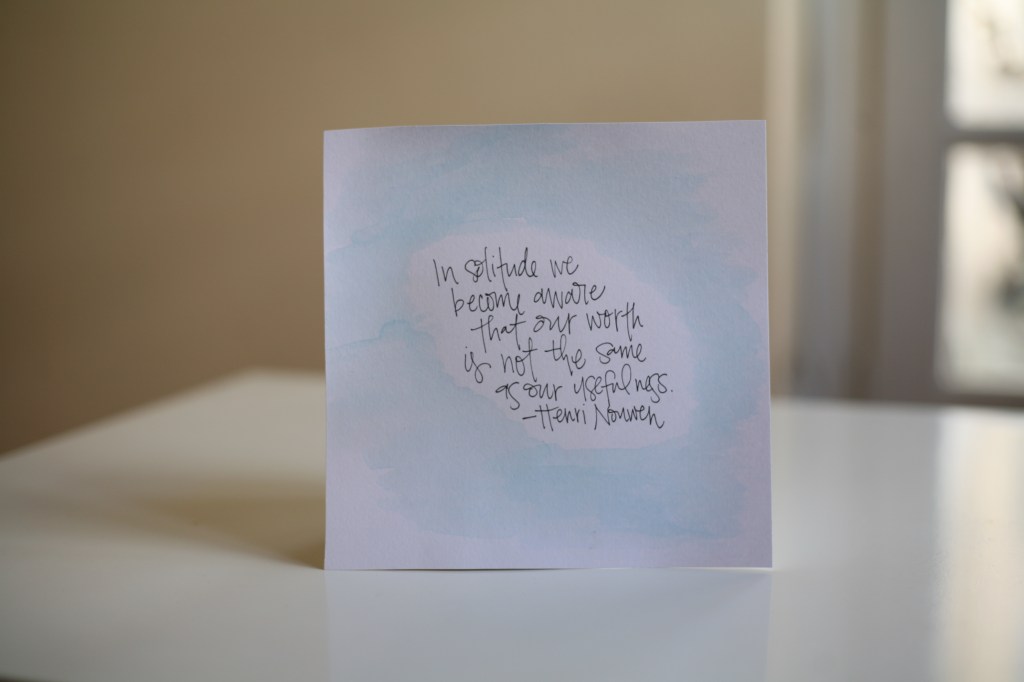 In solitude we
become aware
that our worth
is not the same
as our usefulness.
-Henri Nouwen